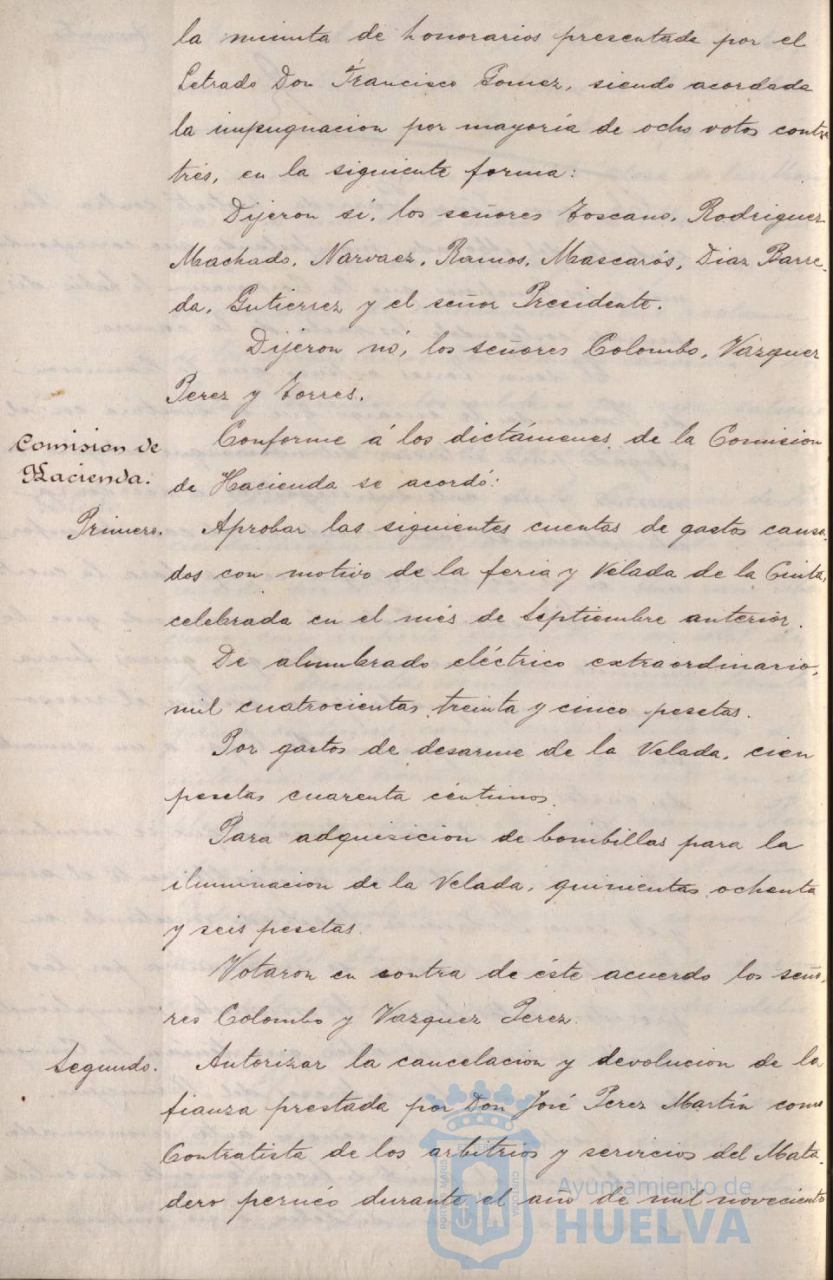 la minuta de honorarios presentada por el
Letrado Don Francisco Gomez, siendo acordada
la impugnacion por mayoría de ocho votos contra
tres, en la siguiente forma:
Dijeron sí, los señores Toscano, Rodriguez
Machado, Narvaez, Ramos, Mascarós, Diaz Barre-
da, Gutierrez y el señor Presidente.
Dijeron nó, los señores Colombo, Vázquez
Perez y Torres.
Comision de
Hacienda.
Conforme á los dictámenes de la Comision
de Hacienda se acordó:
Primero.
Aprobar las siguientes cuentas de gastos causa-
dos con motivo de la feria y Velada de la Cinta,
celebrada en el més de Septiembre anterior.
De alumbrado eléctrico extraordinario,
mil cuatrocientas treinta y cinco pesetas.
Por gastos de desarme de la Velada, cien
pesetas cuarenta céntimos.
Para adquisicion de bombillas para la
iluminacion de la Velada, quinientas ochenta
y seis pesetas.
Votaron en contra de éste acuerdo los seño-
res Colombo y Vazquez Perez.
Segundo.
Autorizar la cancelacion y devolucion de la
fianza prestada por Don José Perez Martín como
Contratista de los arbitrios y servicios del Mata-
dero durante el año de mil novecientos
Ayuntamiento de
HUELVA